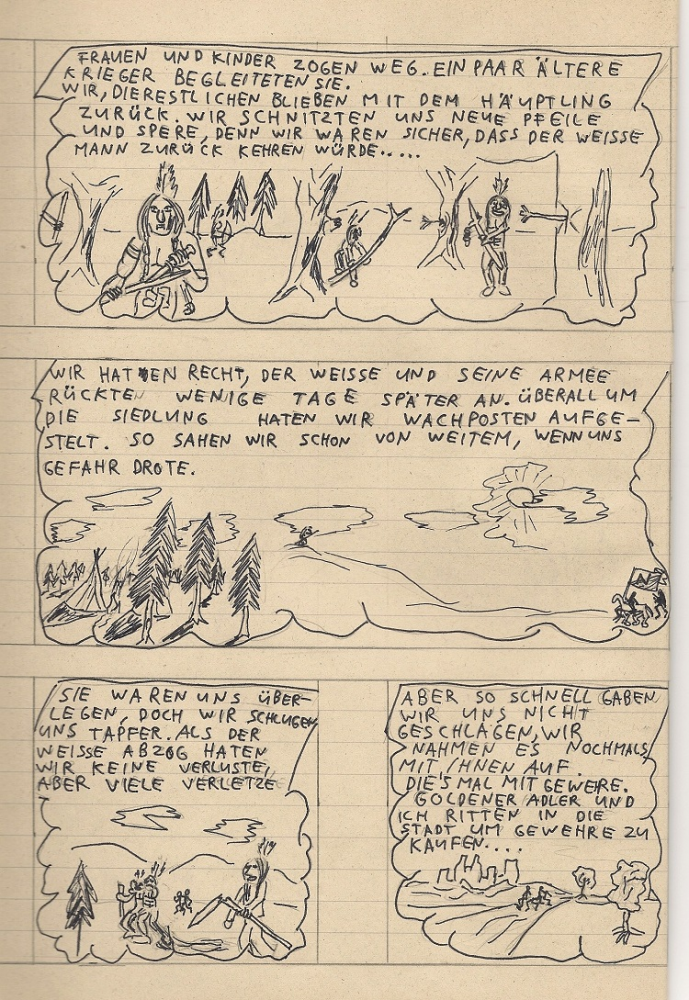 FRAUEN UND KINDER ZOGEN WEG. EIN PAAR ÄLTERE
KRIEGER BEGLEITETEN SIE.
WIR, DIE RESTLICHEN BLIEBEN MIT DEM HÄUPTLING
ZURÜCK. WIR SCHNITZTEN UNS NEUE PFEILE
UND SPERE, DENN WIR WAREN SICHER, DASS DER WEISSE
MANN ZURÜCK KEHREN WÜRDE.....
WIR HATTEN RECHT, DER WEISSE UND SEINE ARMEE
RÜCKTEN WENIGE TAGE SPÄTER AN. ÜBERALL UM
DIE SIEDLUNG HATEN WIR WACHPOSTEN AUFGE-
STELT. SO SAHEN WIR SCHON VON WEITEM, WENN UNS
GEFAHR DROTE.
SIE WAREN UNS ÜBER-
LEGEN, DOCH WIR SCHLUGEN
UNS TAPFER. ALS DER
WEISSE ABZOG HATEN
WIR KEINE VERLUSTE,
ABER VIELE VERLETZE
ABER SO SCHNELL GABEN
WIR UNS NICHT
GESCHLAGEN, WIR
NAHMEN ES NOCHMALS
MIT IHNEN AUF.
DIESMAL MIT GEWERE.
GOLDENER ADLER UND
ICH RITTEN IN DIE
STADT UM GEWEHRE ZU
KAUFEN....